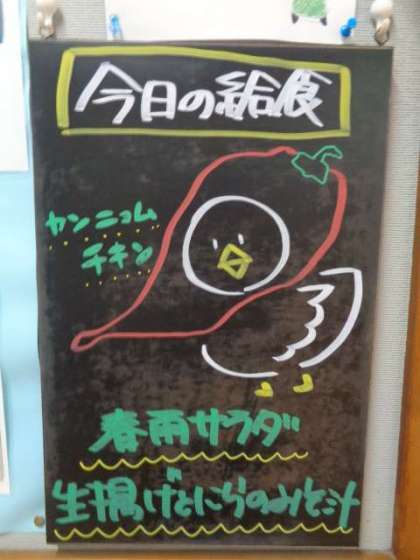 今日の給食
カンニョム
チキン
春雨サラダ
生揚げとにらのみそ汁